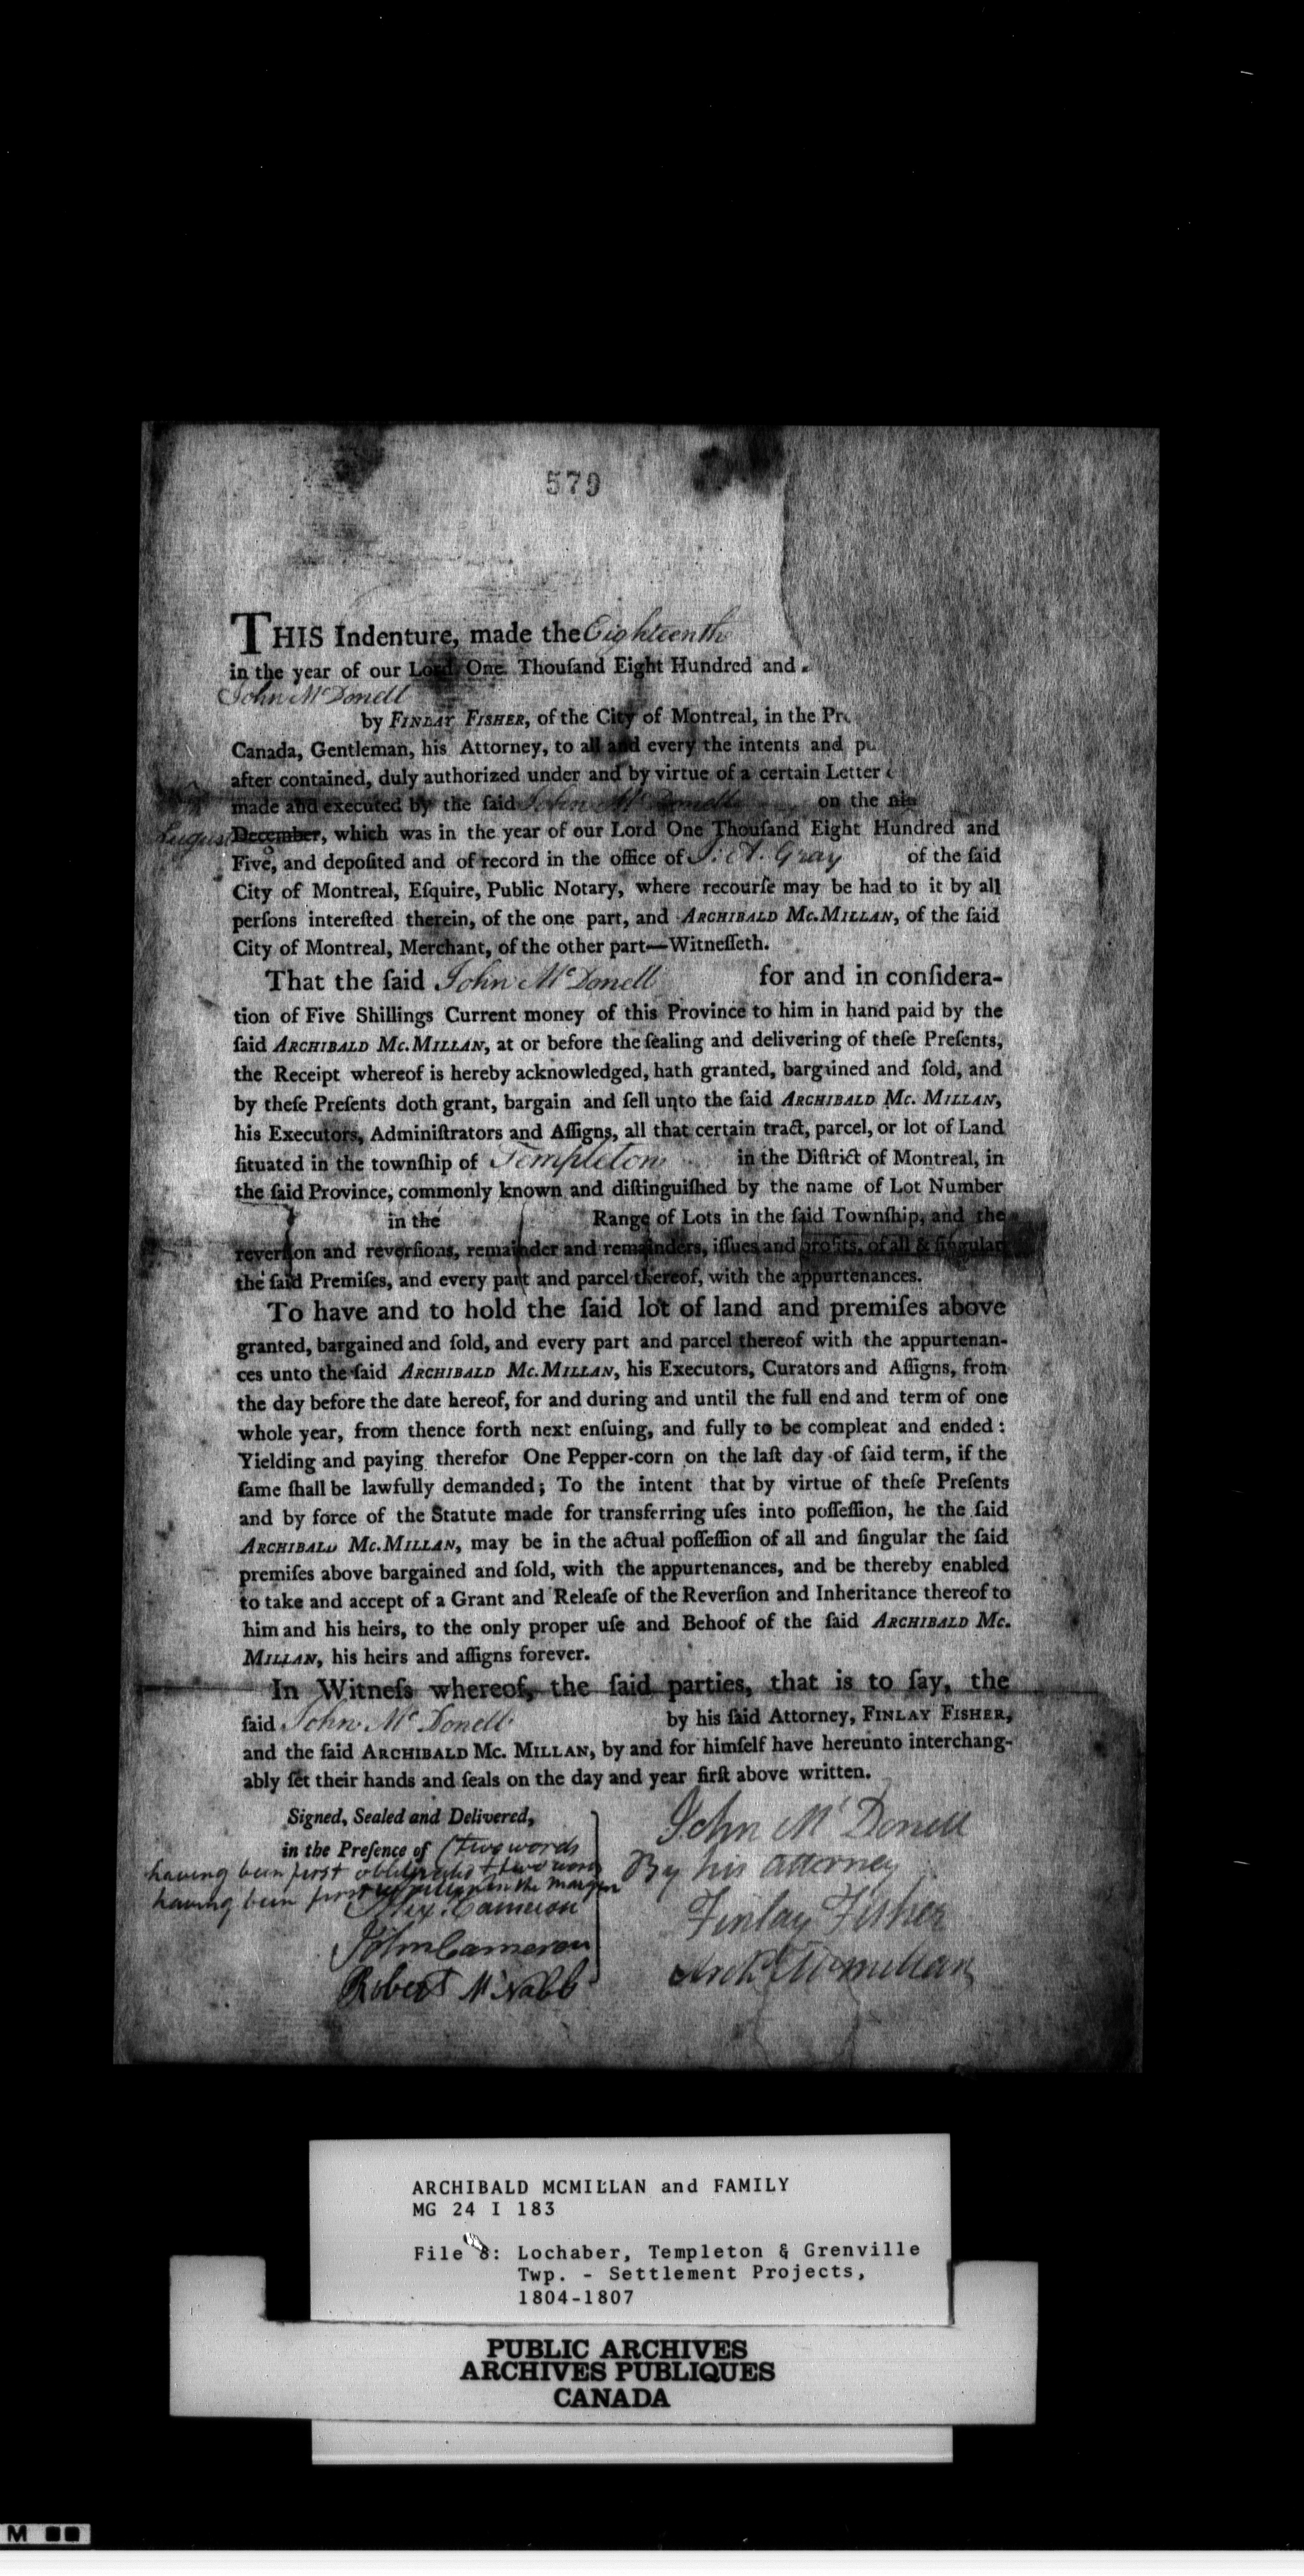 579
THIS Indenture, made the Eighteenth
in the year of our Lord One Thouſand Eight Hundred and
John McDonell
by FINLAY FISHER, of the City of Montreal, in the
Canada, Gentleman, his Attorney, to all and every the intents and
after contained, duly authorized under and by virtue of a certain Letter
made and executed by the ſaid John McDonell on the
August December, which was in the year of our Lord One Thouſand Eight Hundred and
Five, and depoſited and of record in the office of J. A. Gray of the ſaid
City of Montreal, Eſquire, Public Notary, where recourſe may be had to it by all
perſons intereſted therein, of the one part, and ARCHIBALD Mc.MILLAN, of the ſaid
City of Montreal, Merchant, of the other part—Witneſſeth.
That the ſaid John McDonell for and in conſidera-
tion of Five Shillings Current money of this Province to him in hand paid by the
ſaid ARCHIBALD Mc.MILLAN, at or before the ſealing and delivering of theſe Preſents,
the Receipt whereof is hereby acknowledged, hath granted, bargained and ſold, and
by theſe Preſents doth grant, bargain and ſell unto the ſaid ARCHIBALD Mc. MILLAN,
his Executors, Adminiſtrators and Aſſigns, all that certain tract, parcel, or lot of Land
ſituated in the townſhip of Templeton in the Diſtrict of Montreal, in
the ſaid Province, commonly known and diſtinguiſhed by the name of Lot Number
in the Range of Lots in the ſaid Townſhip, and the
reverſion and reverſions, remainder and remainders, iſſues and profits, of all & ſingular
the ſaid Premiſes, and every part and parcel thereof, with the appurtenances.
To have and to hold the ſaid lot of land and premiſes above
granted, bargained and ſold, and every part and parcel thereof with the appurtenan-
ces unto the ſaid ARCHIBALD Mc.MILLAN, his Executors, Curators and Aſſigns, from
the day before the date hereof, for and during and until the full end and term of one
whole year, from thence forth next enſuing, and fully to be compleat and ended :
Yielding and paying therefor One Pepper-corn on the laſt day of ſaid term, if the
ſame ſhall be lawfully demanded; To the intent that by virtue of theſe Preſents
and by force of the Statute made for transferring uſes into poſſeſſion, he the ſaid
ARCHIBALD Mc.MILLAN, may be in the actual poſſeſſion of all and ſingular the ſaid
premiſes above bargained and ſold, with the appurtenances, and be thereby enabled
to take and accept of a Grant and Releaſe of the Reverſion and Inheritance thereof to
him and his heirs, to the only proper uſe and Behoof of the ſaid ARCHIBALD Mc.
MILLAN, his heirs and aſſigns forever.
In Witneſs whereof, the ſaid parties, that is to ſay, the
ſaid John McDonell by his ſaid Attorney, FINLAY FISHER,
and the ſaid ARCHIBALD Mc. MILLAN, by and for himſelf have hereunto interchang-
ably ſet their hands and ſeals on the day and year firſt above written.
Signed, Sealed and Delivered,
in the Preſence of (two words
having been first obliterated & two words
having been first in the margin
Alex. Cameron
John Cameron
Robert McNabb
John McDonell
By his attorney
Finlay Fisher
Archd McMillan
ARCHIBALD MCMILLAN and FAMILY
MG 24 I 183
File 8: Lochaber, Templeton & Grenville
Twp. - Settlement Projects,
1804-1807
PUBLIC ARCHIVES
ARCHIVES PUBLIQUES
CANADA
M